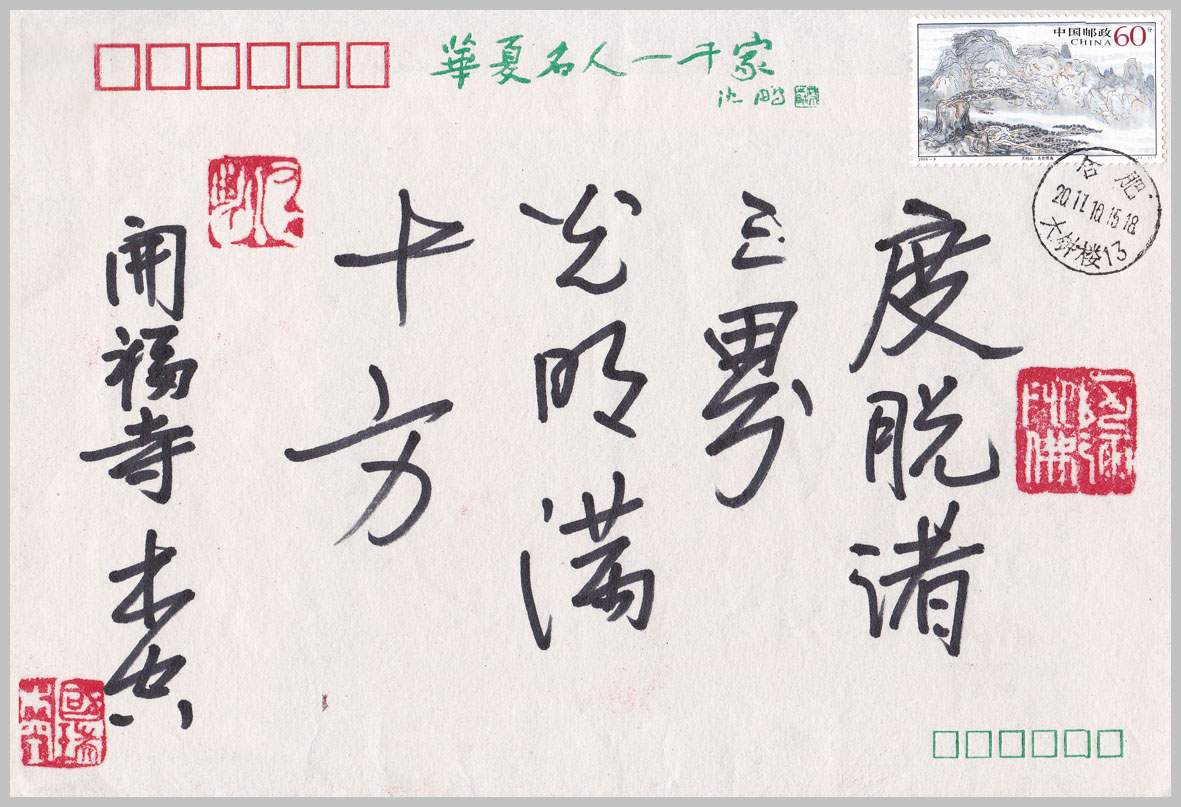 華夏名人一千家
沈鹏
中国邮政
CHINA
60分
合肥
2011.10.15.18
大钟楼13
度脱诸
三界
光明满
十方
開福寺 木空